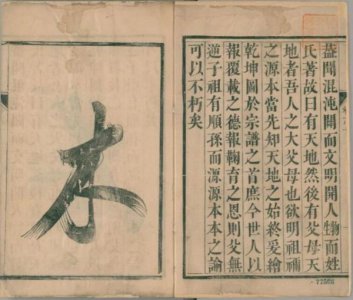 蓋聞混沌開而文明開人物而姓
氏著故曰有天地然後有父母天
地者吾人之大父母也欲明祖禰
之源本當先知天地之始終爰繪
乾坤圖於宗譜之首庶令世人以
報覆載之德報鞠育之恩則父無
道子祖有順孫而源源本本之論
可以不朽矣
本